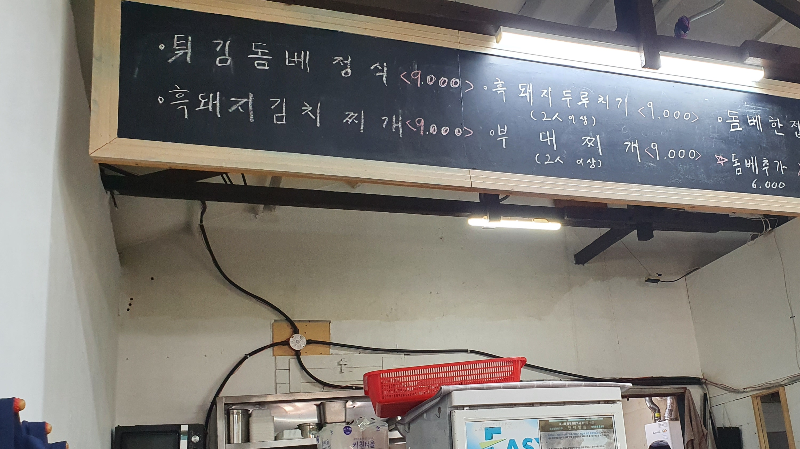 ·튀김돔베 정식<9.000>
·흑돼지김치 찌개<9.000>
·흑돼지두루치기<9.000>
(2人 이상)
·부대찌개<9.000>
(2人 이상)
·돔베한접
돔베추가
6.000
EASY